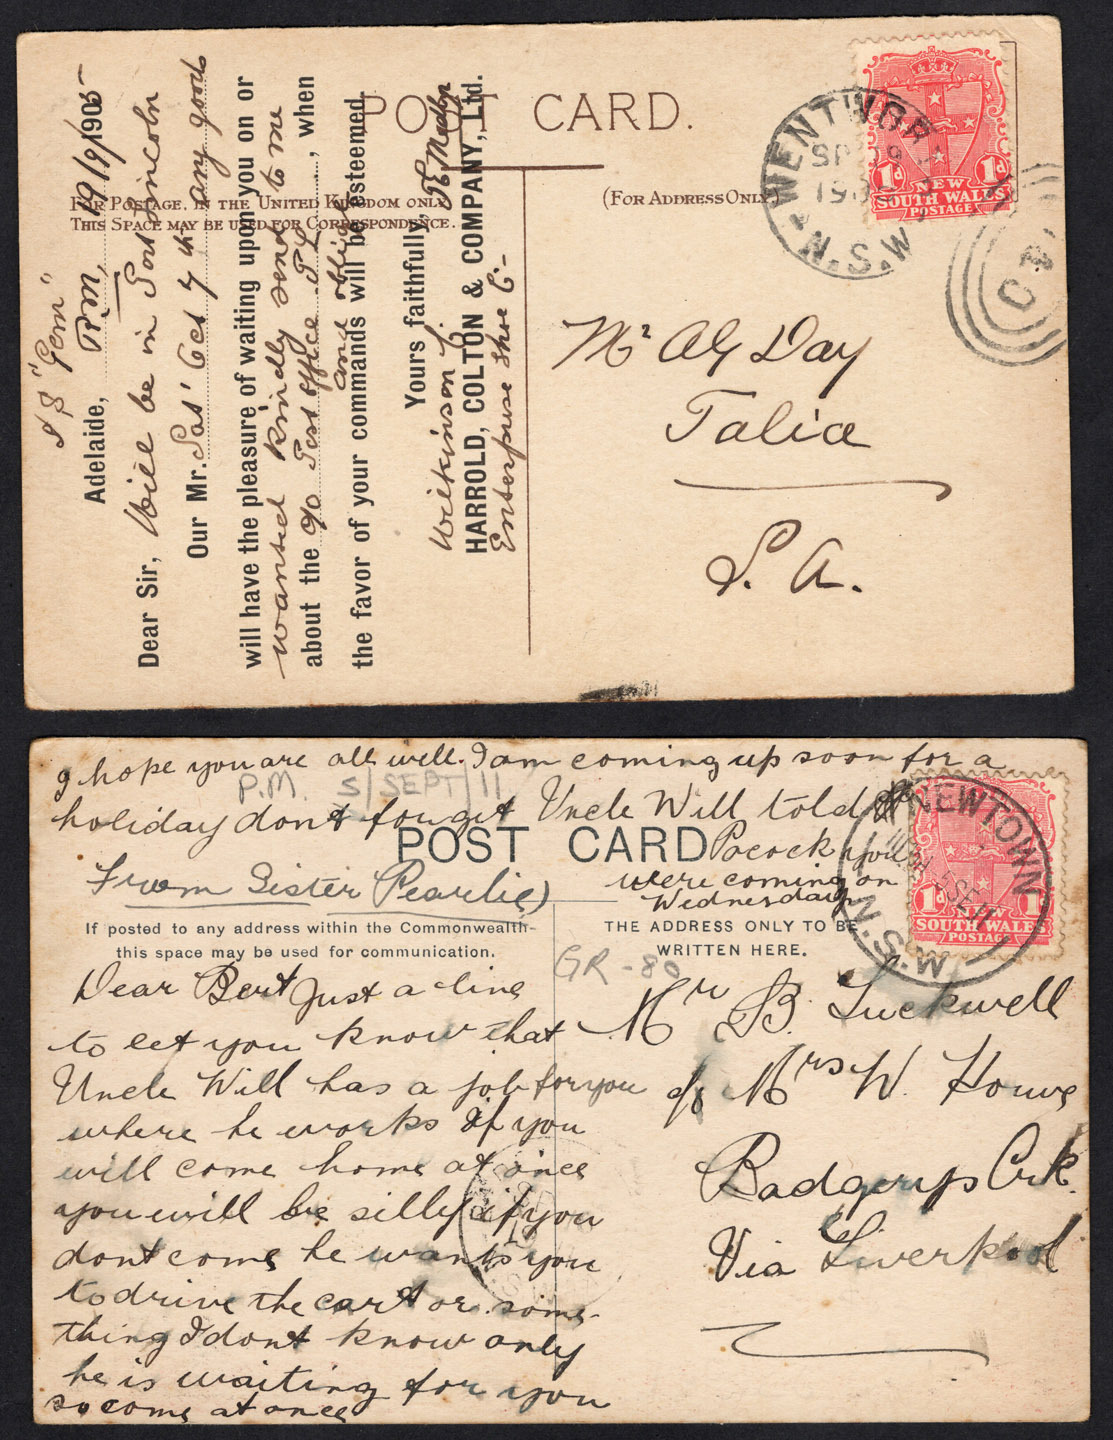 POST CARD.
FOR POSTAGE, IN THE UNITED KINGDOM ONLY
THIS SPACE MAY BE USED FOR CORRESPONDENCE.
(FOR ADDRESS ONLY)
S S "Gem"
Adelaide, P.M, 19/9/1905
Dear Sir, Will be in Port Lincoln
Our Mr. Oct 7th any goods
will have the pleasure of waiting upon you on or
wanted kindly send to me
about the c/o Post Office P L, when
and oblige
the favor of your commands will be esteemed.
Yours faithfully,
Wilkinson &
HARROLD, COLTON & COMPANY, Ltd.
Enterprise Shoe Co
WENTWOR
SP
19
N.S.W
1d 1d
NEW
SOUTH WALES
POSTAGE
Mr A G Day
Talia
S. A.
I hope you are all well. I am coming up soon for a
P.M. 5/SEPT/11
holiday dont forget Uncle Will told
POST CARD
Pocock you
were coming on
Wednesday
From Sister Pearlie)
If posted to any address within the Commonwealth
this space may be used for communication.
THE ADDRESS ONLY TO BE
WRITTEN HERE.
GR -80
NEWTOWN
5 SE 11
N.S.W
1d 1d
NEW
SOUTH WALES
POSTAGE
Dear Bert Just a line
to let you know that
Uncle Will has a job for you
where he works If you
will come home at once
you will be silly if you
dont come he wants you
to drive the cart or some-
thing I dont know only
he is waiting for you
so come at once
Mr B. Luckwell
c/o Mrs W. Howe
Badgerys Crk.
Via Liverpool